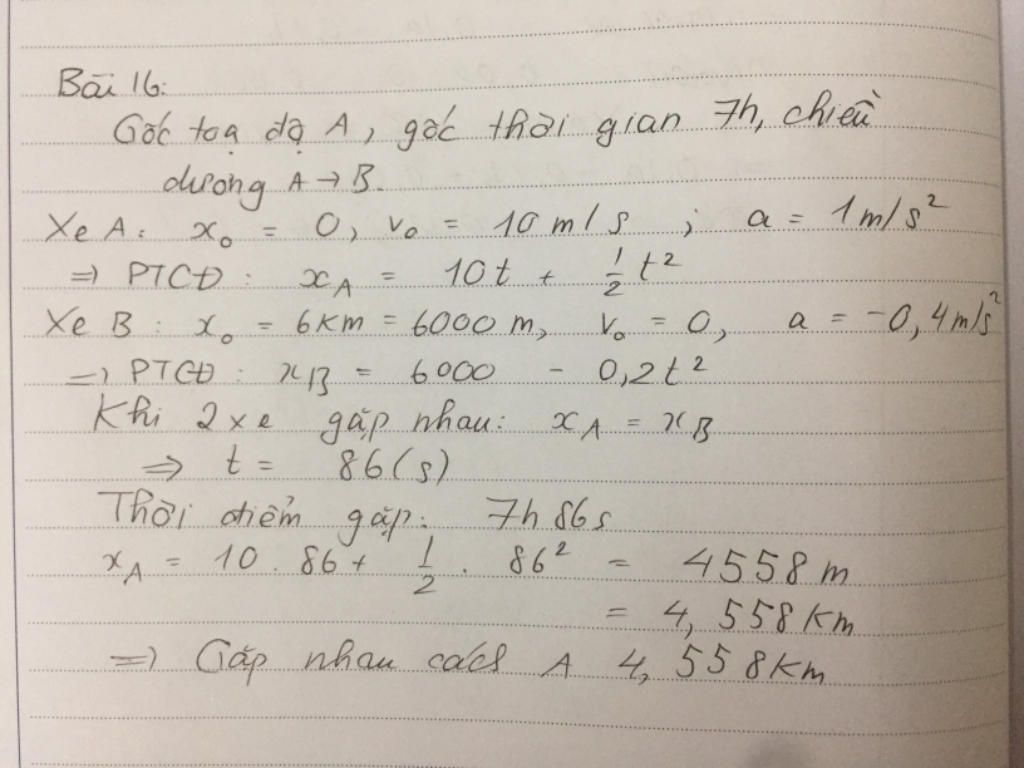 Bài 16:
Gốc toạ độ A, gốc thời gian 7h, chiều
dương A → B.
Xe A: x₀ = 0, v₀ = 10 m/s ; a = 1 m/s²
⇒ PTCĐ: x_A = 10t + 1/2 t²
Xe B: x₀ = 6km = 6000 m, v₀ = 0, a = -0,4 m/s²
⇒ PTCĐ: x_B = 6000 - 0,2t²
Khi 2 xe gặp nhau: x_A = x_B
⇒ t = 86(s)
Thời điểm gặp: 7h 86s
x_A = 10 . 86 + 1/2 . 86² = 4558 m
= 4,558 Km
⇒ Gặp nhau cách A 4,558 Km